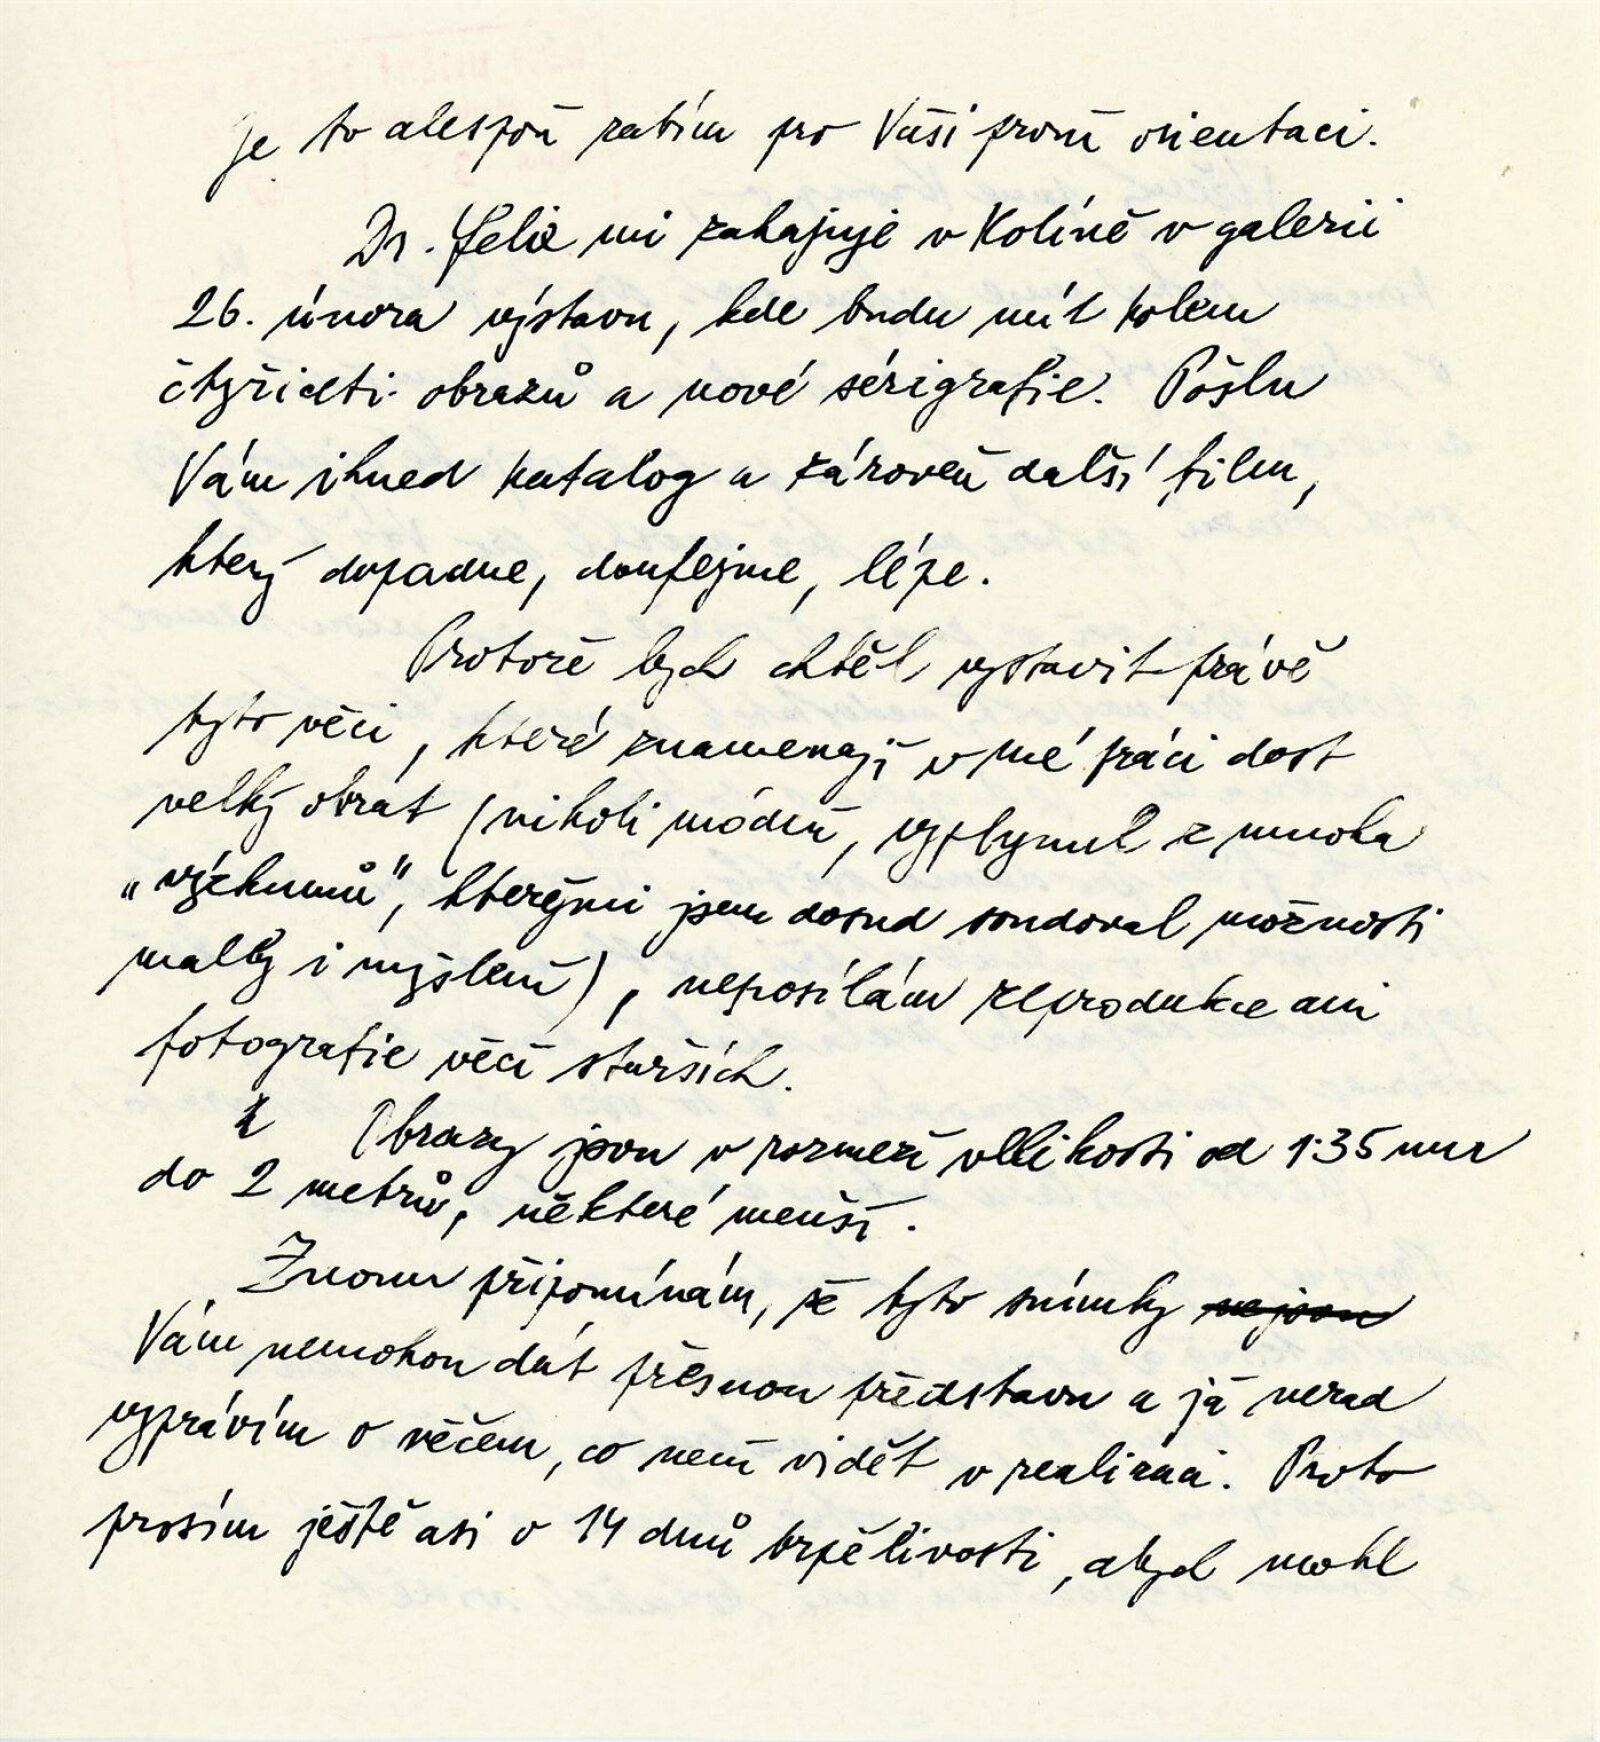 Je to alespoň zatím pro Vaši první orientaci.
Dr. Felix mi zahajuje v Kolíně v galerii
26. února výstavu, kde budu mít kolem
čtyřiceti obrazů a nové sérigrafie. Pošlu
Vám ihned katalog a zároveň další film,
který dopadne, doufejme, lépe.
Protože bych chtěl vystavit právě
tyto věci, které znamenají v mé práci dost
velký obrat (nikoli módní, vyplynul z mnoha
„výzkumů", kterými jsem dosud sondoval možnosti
malby i myšlení), neposílám reprodukce ani
fotografie věcí starších.
Obrazy jsou v rozmezí velikosti od 1.35 mm
do 2 metrů, některé menší.
Znovu připomínám, že tyto snímky nejsou
Vám nemohou dát přesnou představu a já nerad
vyprávím o něčem, co není vidět v realizaci. Proto
prosím ještě asi o 14 dnů trpělivosti, abych mohl